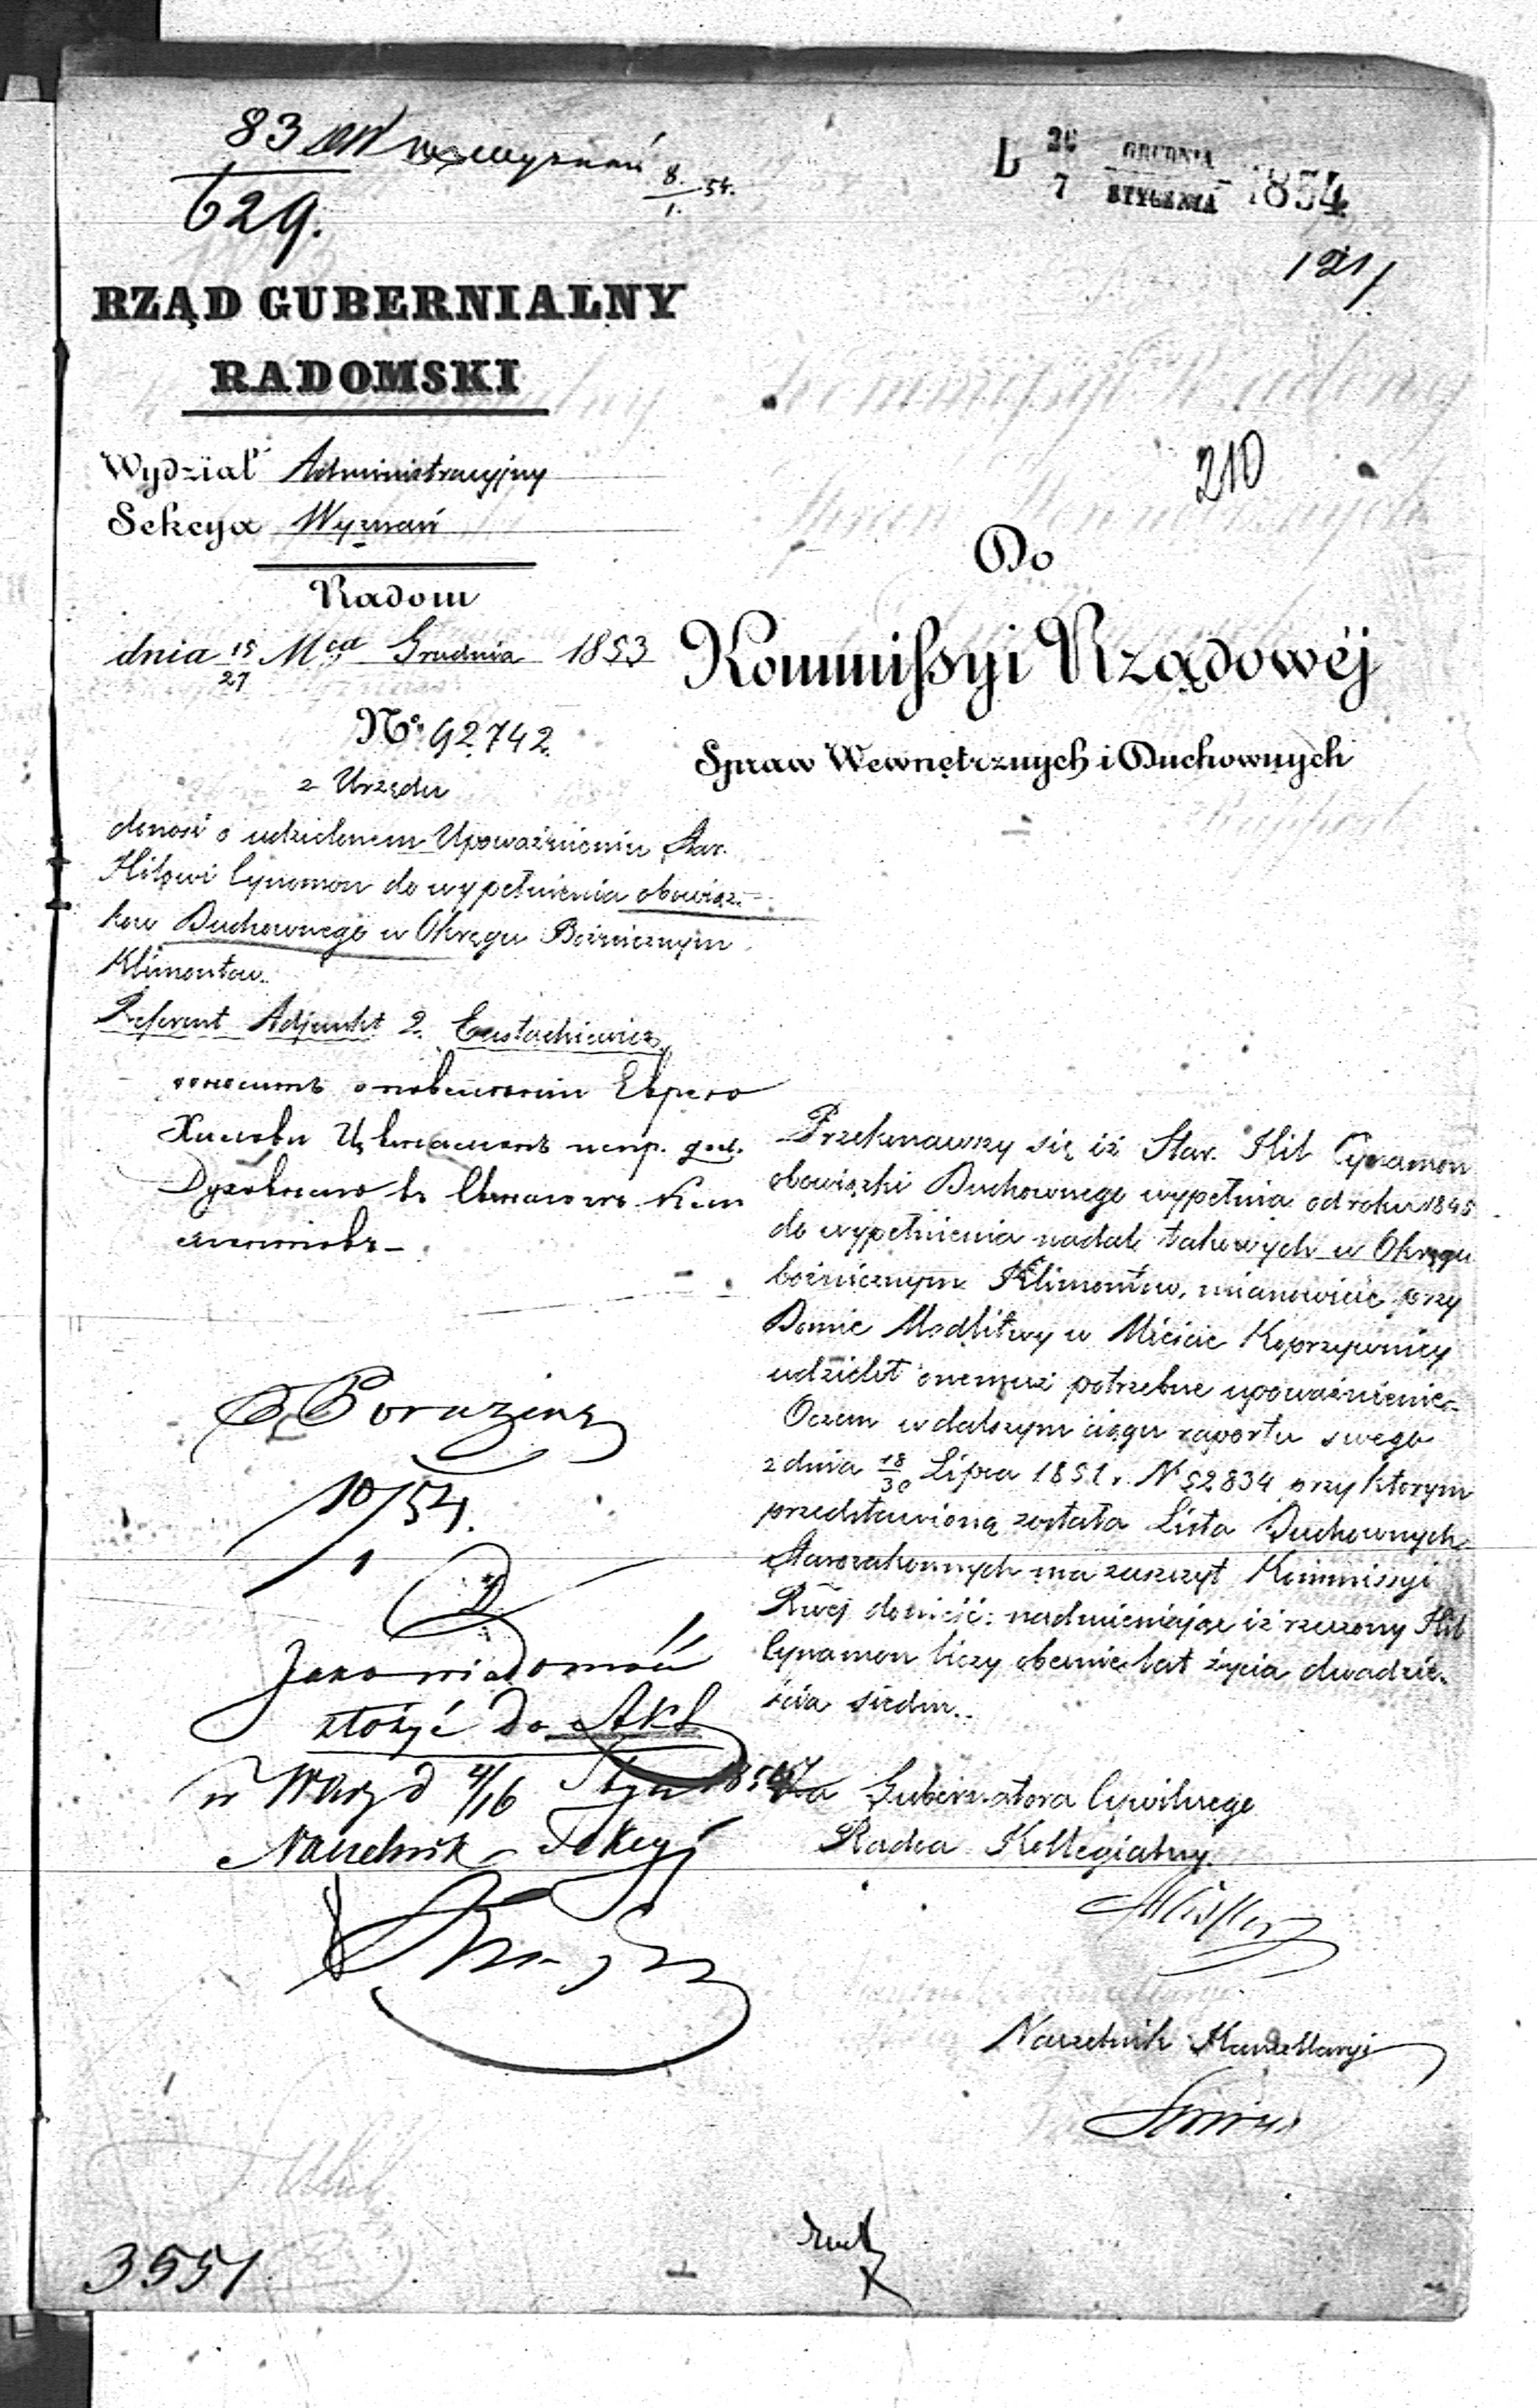 83
629.
8/1 54.
26 GRUDNIA
7 STYCZNIA 1854
121
RZĄD GUBERNIALNY
RADOMSKI
Wydział Administracyjny
Sekcya Wyznań
Radom
dnia 15/27 Mca Grudnia 1853
No 92.742.
z Urzędu
210
Do
Kommissyi Rządowéj
Spraw Wewnętrznych i Duchownych
donosi o udzielonem Upoważnieniu Star.
Hilowi Cynamon do wypełnienia obowiąz-
ków Duchownego w Okręgu Bóżnicznym
Klimontow.
Referent Adjunkt 2. Eustachiewicz
доноситъ о
Духовнаго
Przekonawszy się iż Star. Hil Cynamon
obowiązki Duchownego wypełnia od roku 1845
do wypełnienia nadal takowych w Okręgu
bóżnicznym Klimontów, mianowicie przy
Domie Modlitwy w Mieście Koprzywnicy
udzielił onemuż potrzebne upoważnienie.
Oczem w dalszym ciągu raportu swego
z dnia 18/30 Lipca 1851 r. N 52834 przy którym
przedstawioną została Lista Duchownych
Starozakonnych ma zaszczyt Kommissyi
Rwej donieść: nadmieniając iż rzeczony Hil
Cynamon liczy obecnie lat życia dwadzie-
ścia siedm.
10/1 54.
Jako wiadomość
złożyć do Akt
w Warz d 4/16 Stycz 1854
Naczelnik Sekcyi
Za Gubernatora Cywilnego
Radca Kollegialny.
Naczelnik Kancellaryi
3551